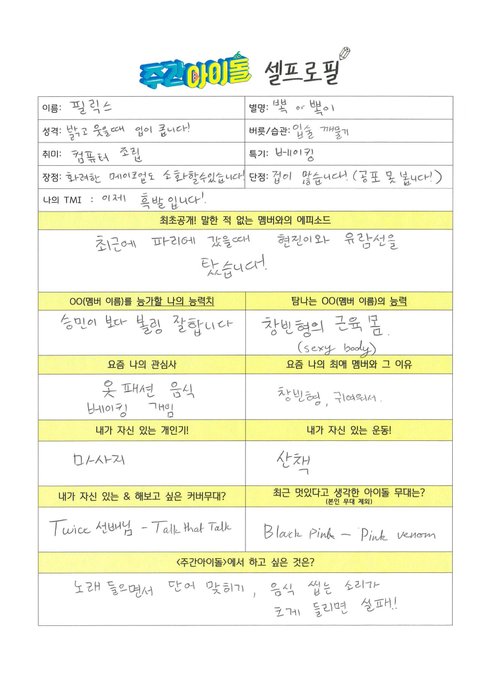 주간아이돌 셀프로필
이름: 필릭스
별명: 뽁 or 뽁이
성격: 밝고 웃을때 입이 큽니다!
버릇/습관: 입술 깨물기
취미: 컴퓨터 조립
특기: 베이킹
장점: 화려한 메이크업도 소화할수있습니다!
단점: 겁이 많습니다! (공포 못 봅니다!)
나의 TMI : 이제 흑발입니다!
최초공개! 말한 적 없는 멤버와의 에피소드
최근에 파리에 갔을때 현진이와 유람선을
탔습니다!
OO(멤버 이름)를 능가할 나의 능력치
승민이 보다 볼링 잘합니다
탐나는 OO(멤버 이름)의 능력
창빈형의 근육 몸
(sexy body)
요즘 나의 관심사
옷 패션 음식
베이킹 게임
요즘 나의 최애 멤버와 그 이유
창빈형, 귀여워서.
내가 자신 있는 개인기!
마사지
내가 자신 있는 운동!
산책
내가 자신 있는 & 해보고 싶은 커버무대?
Twice 선배님 - Talk that Talk
최근 멋있다고 생각한 아이돌 무대는?
(본인 무대 제외)
Black pink - Pink venom
<주간아이돌>에서 하고 싶은 것은?
노래 들으면서 단어 맞히기, 음식 씹는 소리가
크게 들리면 실패!!